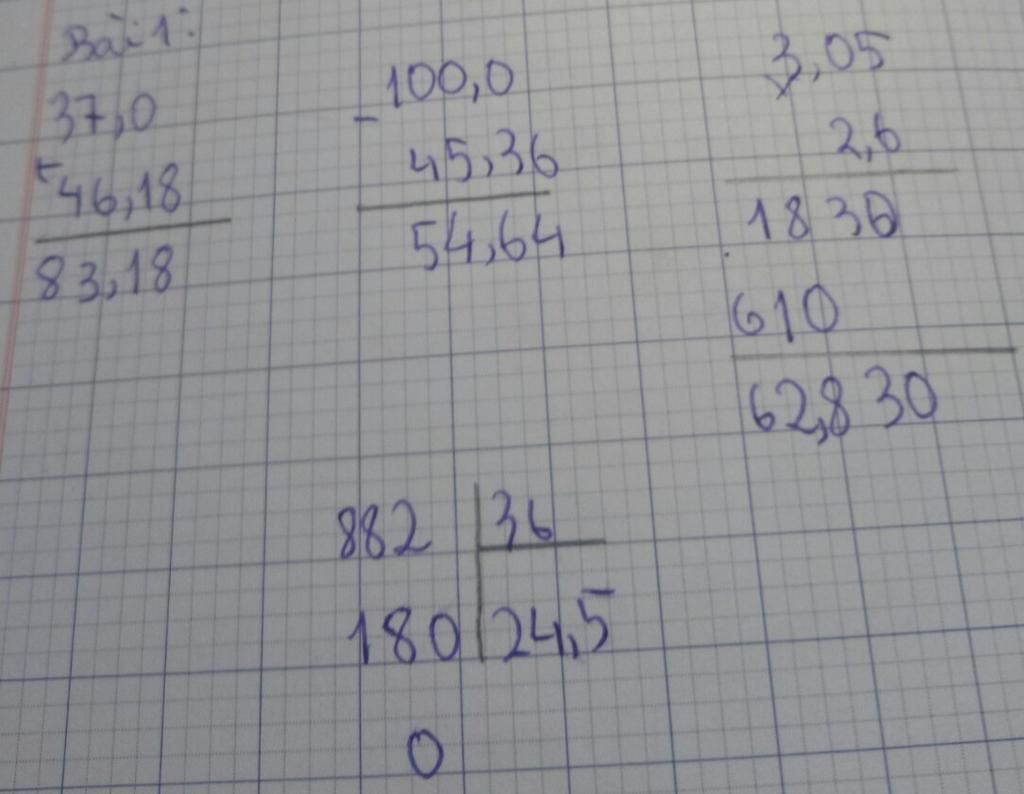 Bài 1:
37,0
+
46,18
83,18
100,0
-
45,36
54,64
3,05
2,6
1830
610
62,830
882 36
180 24,5
0